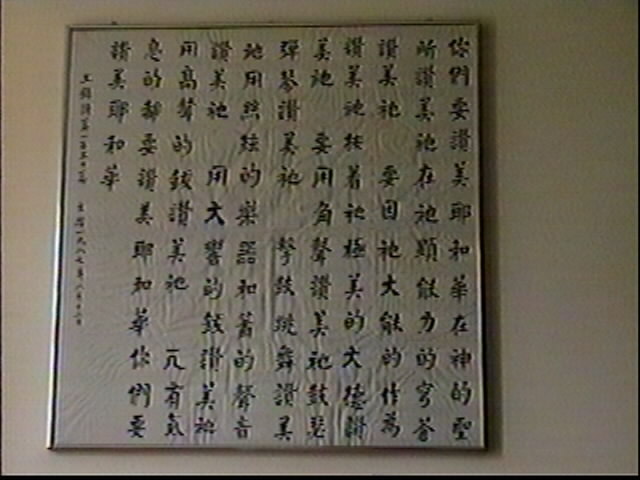 你們要讚美耶和華在神的聖
所讚美祂在祂顯能力的穹蒼
讚美祂 要因祂大能的作為
讚美祂按着祂極美的大德讚
美祂 要用角聲讚美祂鼓瑟
彈琴讚美祂 擊鼓跳舞讚美
祂用絲絃的樂器和簫的聲音
讚美祂 用大響的鈸讚美祂
用高聲的鈸讚美祂 凡有氣
息的都要讚美耶和華你們要
讚美耶和華
一百五十篇 一九八七年八月